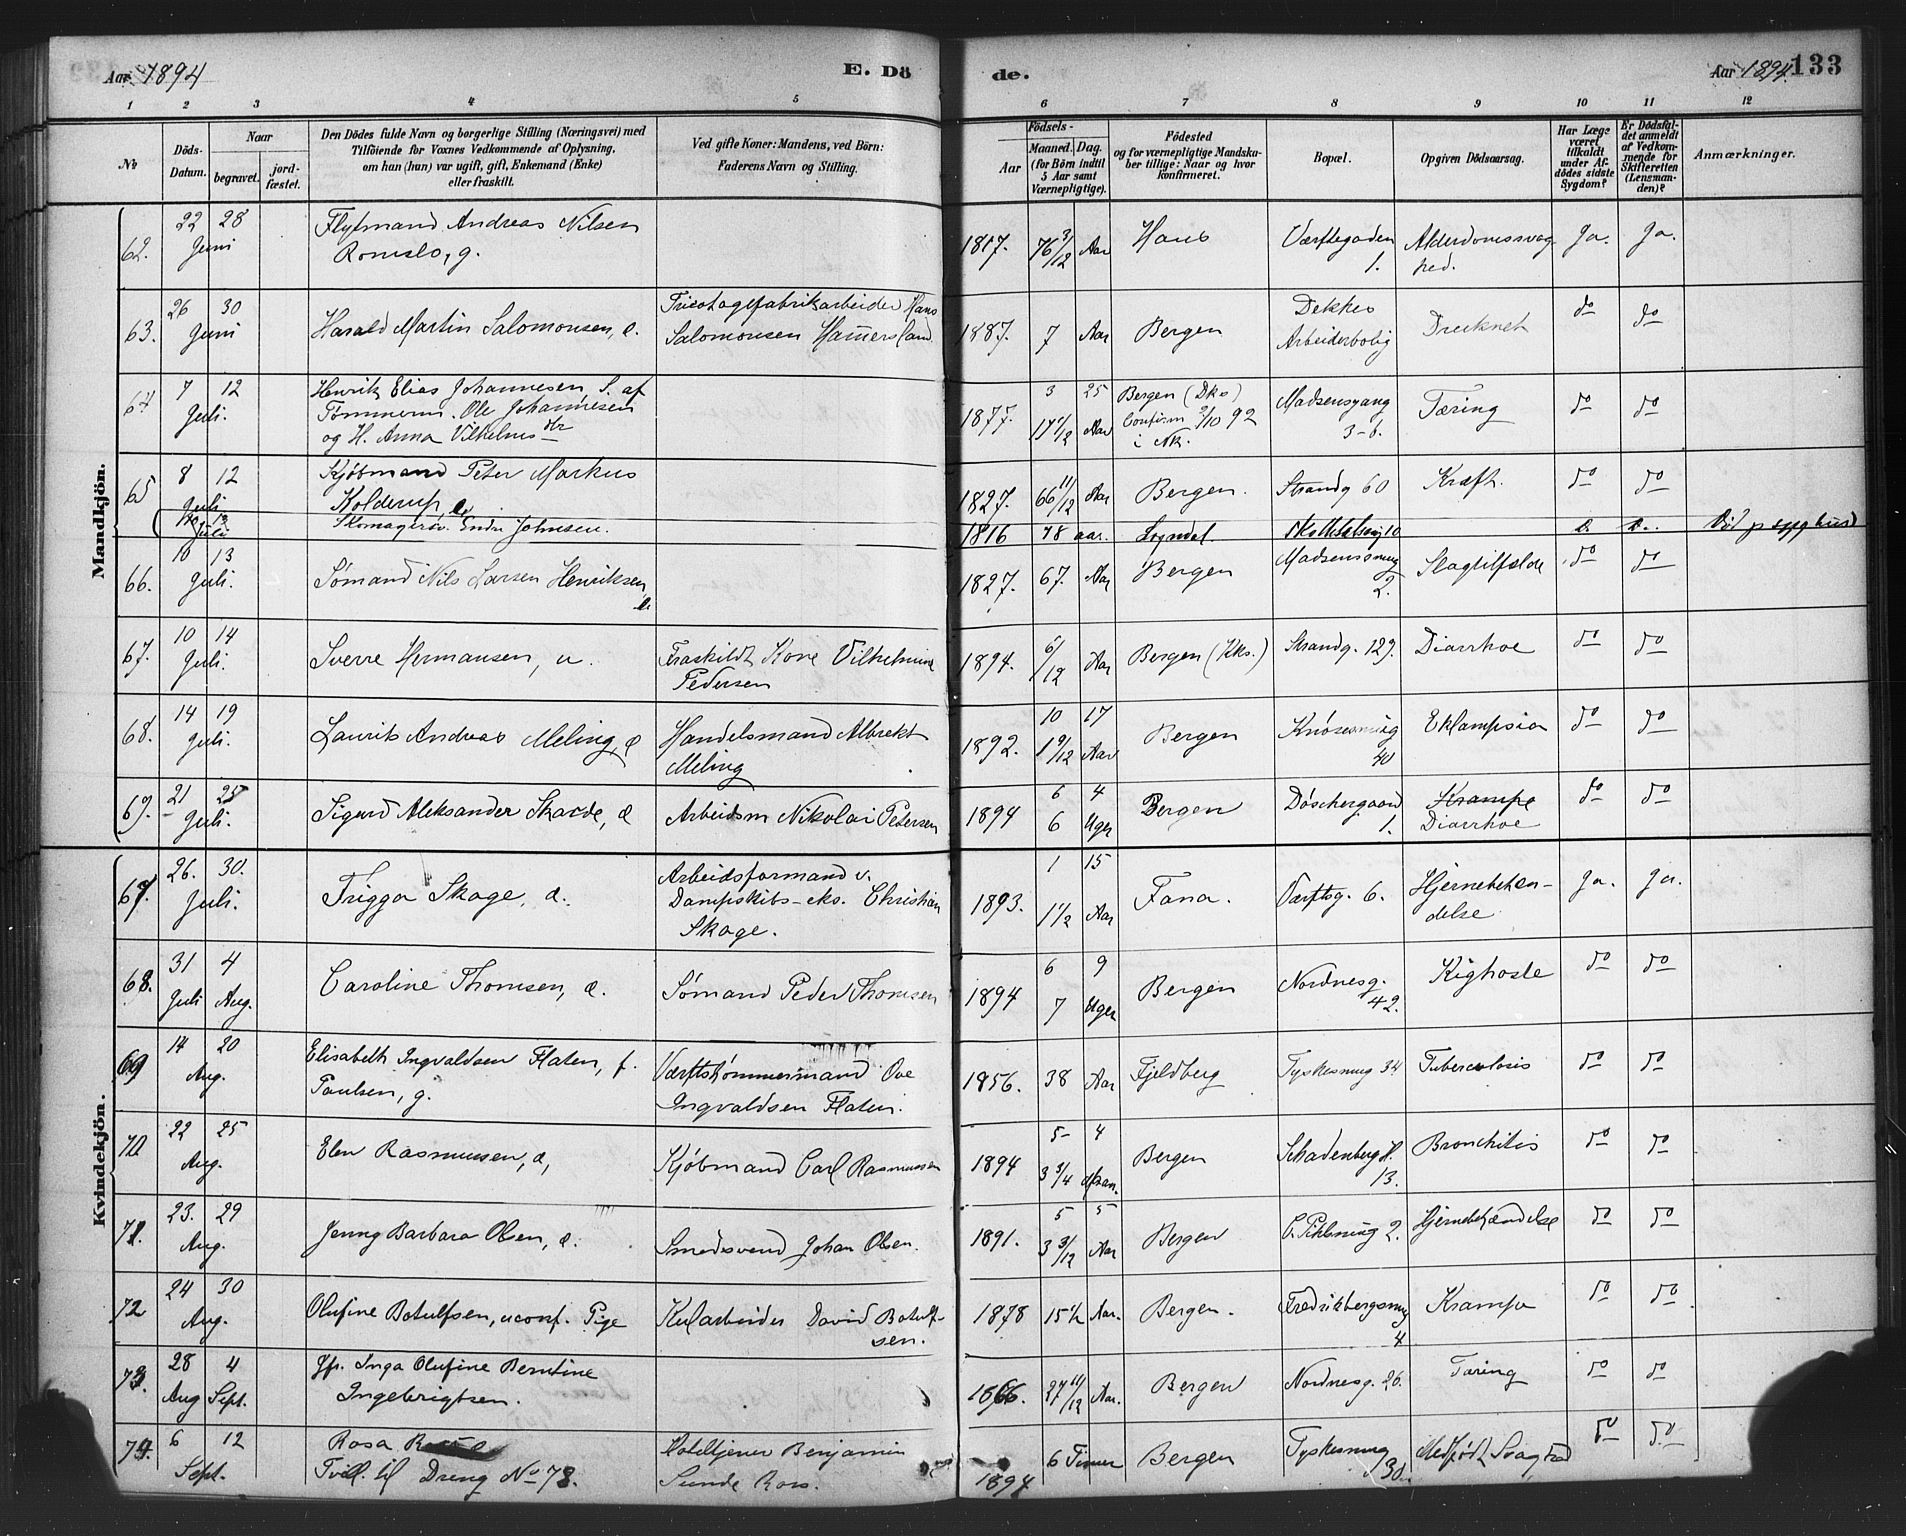 Aar 1894
E. Dö
de.
Aar 1894.
133
1 2 3 4 5 6 7 8 9 10 11 12
No
Döds-Datum.
Naar
begravet.
jord-fæstet.
Den Dödes fulde Navn og borgerlige Stilling (Næringsvei) med
Tilföiende for Voxnes Vedkommende af Oplysning,
om han (hun) var ugift, gift, Enkemand (Enke)
eller fraskilt.
Ved gifte Koner: Mandens, ved Börn:
Faderens Navn og Stilling.
Födsels-
Aar
Maaned. Dag.
(for Börn indtil
5 Aar samt
Værnepligtige).
Födested
og for værnepligtige Mandska-
ber tillige: Naar og hvor
konfirmeret.
Bopæl.
Opgiven Dödsaarsag.
Har Læge
været
tilkaldt
under Af-
dödes sidste
Sygdom?
Er Dödsfal-
det anmeldt
af Vedkom-
mende for
Skifteretten
(Lensman-
den)?
Anmærkninger.
Mandkjön.
62. 22 Juni 28 Flytmand Andreas Nilsen
Romslo, g. 1817. 76 3/12 Aar Haus Værftegaden
1. Alderdomssvag
hed. Ja. Ja.
63. 26 Juni 30 Harald Martin Salomonsen, e. Tricotagefabrikarbeider Hans
Salomonsen Hamersland. 1887. 7 Aar Bergen Dekkes
Arbeiderbolig Drucknet do do
64 7 Juli. 12 Henrik Elias Johannesen S. af
Tømmerm. Ole Johannesen
og H. Anna Vilhelms dtr 1877. 3 25
17 1/12 Aar Bergen (Dks)
Confirm 2/10 92
i Nk. Madsensgang
3-b. Tæring do do
65 8 Juli 12 Kjøbmand Peter Markus
Kolderup, e. 1827. 66 11/12 Aar Bergen. Strandg 60 Kræft. do do
Juli 13 Skomagersv. Endre Johnsen. 1816 78 aar. Lyndal
66. 10 Juli. 13 Sømand Nils Larsen Henriksen,
e. 1827. 67. Aar Bergen Madsensmug
2. Slagtilfælde do do
67. 10 Juli. 14 Sverre Hermansen, u. Fraskildt Kone Vilhelmine
Pedersen 1894. 6/12 Aar Bergen (Kks.) Strandg. 129. Diarrhoe do do
68. 14 Juli. 19 Laurits Andreas Meling, e Handelsmand Albrekt
Meling 1892. 10 17
1 9/12 Aar Bergen Knøsesmug
40 Eklampsia do do
69. 21 Juli. 25 Sigurd Aleksander Skarde, e Arbeidsm Nikolai Petersen 1894 6 4
6 Uger Bergen Døschergaard
1. Krampe
Diarrhoe do do
Kvindekjön.
67. 26. Juli. 30. Trigga Skage, e. Arbeidsformand v.
Dampskibs-eks. Christian
Skage. 1893. 1 15
1 1/2 Aar Fana. Værftsg. 6. Hjernebetæn-
delse Ja. Ja.
68. 31 Juli 4 Aug. Caroline Thomsen, e. Sømand Peder Thomsen 1894 6 9
7 Uger Bergen Nordnesg.
42. Kighoste do do
69 14 Aug. 20 Elisabeth Ingvaldsen Flaten, f.
Paulsen, g. Værftstømmermand Ove
Ingvaldsen Flaten. 1856. 38 Aar Fjeldberg Tyskesmug 34 Tuberculosis do do
70 22 Aug. 25 Elen Rasmussen, e, Kjøbmand Carl Rasmussen 1894 5 4
3 3/4 Maan. Bergen Skadenberg
13. Bronchitis do do
71. 23. Aug. 29 Jenny Barbara Olsen, e. Smedsvend Johan Olsen. 1891. 5 5
3 3/12 Aar Bergen 2. Hjernebetændelse do do
72 24 Aug. 30 Olufine Botulfsen, uconf. Pige Kularbeider David Botulf-
sen. 1878 15 1/2 Aar. Bergen. Fredriksbergsmug
4 Krampe do do
73. 28 Aug 4 Sept. Inga Olufine Berntine
Ingebrigtsen. 1866. 27 11/12 Aar. Bergen Nordnesg. 26. Tæring do do
74. 6 Sept. 12 Rosa
Tvil. til Dreng No 78. Hoteltjener Benjamin
Sunde Ross. 1894 6 Timer Bergen Tyskesmug
30. Medfødt Svaghed do do